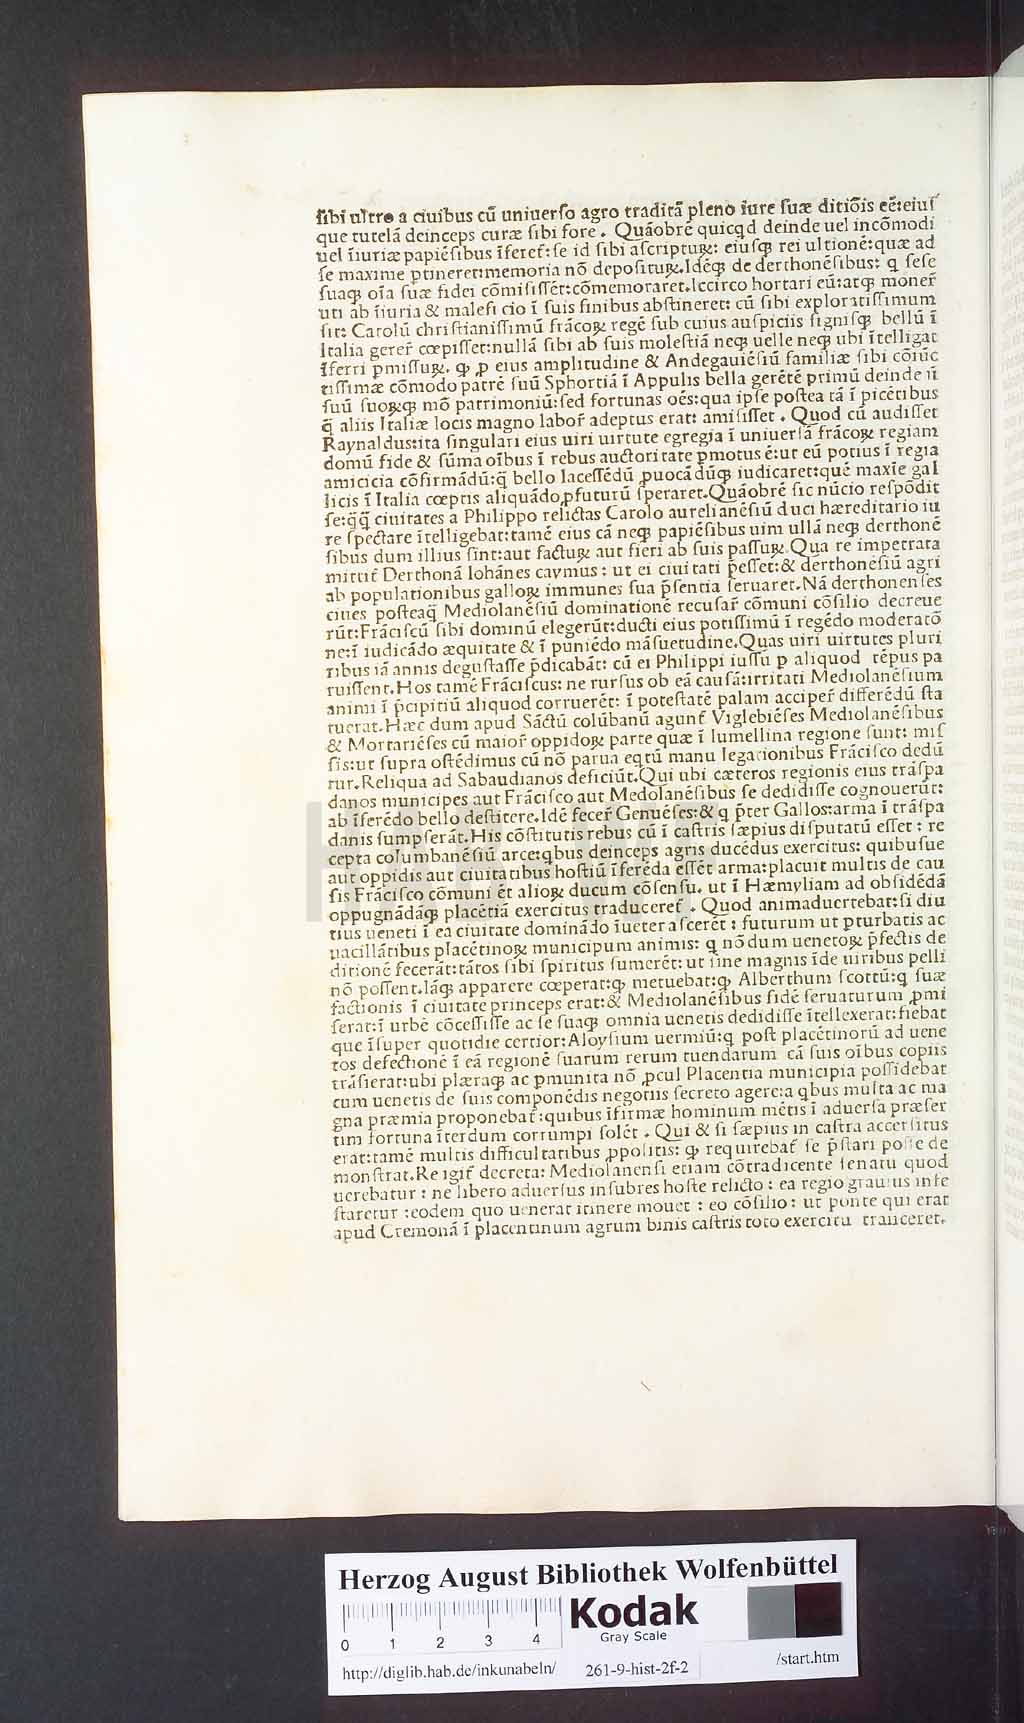 ſibi ultro a ciuibus cũ uniuerſo agro traditã pleno iure ſuæ ditiõis eẽ:eiuſ
que tutelã deinceps curæ ſibi fore . Quãobrẽ quicqd deinde uel incõmodi
uel ĩiuriæ papiẽſibus ĩferet᷑: ſe id ſibi aſcripturꝝ: eiuſqꝫ rei ultionẽ:quæ ad
ſe maxime ꝑtineret:memoria nõ depoſiturꝝ.Idẽqꝫ de derthonẽſibus: q ſeſe
ſuaqꝫ oĩa ſuæ fidei cõmiſiſſẽt:cõmemoraret.Iccirco hortari eũ:atqꝫ moner᷑
uti ab ĩiuria & malefi cio ĩ ſuis finibus abſtineret: cũ ſibi exploratiſſimum
ſit: Carolũ chriſtianiſſimũ frãcoꝝ regẽ ſub cuius auſpiciis ſigniſqꝫ bellũ ĩ
Italia gerer᷑ cœpiſſet:nullã ſibi ab ſuis moleſtiã neqꝫ uelle neqꝫ ubi ĩtelligat
ĩferri ꝑmiſſuꝝ. qꝫ ꝓ eius amplitudine & Andegauiẽſiũ familiæ ſibi cõiũc
tiſſimæ cõmodo patrẽ ſuũ Sphortiã ĩ Appulis bella gerẽtẽ primũ deinde ñ
ſuũ ſuoꝝqꝫ mõ patrimoniũ:ſed fortunas oẽs:qua ipſe poſtea tã ĩ picẽtibus
q̃ aliis Italiæ locis magno labor᷑ adeptus erat: amiſiſſet . Quod cũ audiſſet
Raynaldus:ita ſingulari eius uiri uirtute egregia ĩ uniuerſã frãcoꝝ regiam
domũ fide & ſũma oĩbus ĩ rebus auctoritate ꝑmotus ẽ:ut eũ potius ĩ regia
amicicia cõfirmãdũ:q̃ bello laceſſẽdũ ꝓuocãdũqꝫ iudicaret:quẽ maxĩe gal
licis ĩ Italia cœptis aliquãdo ꝓfuturũ ſperaret.Quãobrẽ ſic nũcio reſpõdit
ſe:q̃q̃ ciuitates a Philippo relictas Carolo aurelianẽſiũ duci hæreditario iu
re ſpectare ĩtelligebat:tamẽ eius cã neqꝫ papiẽſibus uim ullã neqꝫ derthonẽ
ſibus dum illius ſint:aut factuꝝ aut fieri ab ſuis paſſuꝝ.Qua re impetrata
mittit᷑ Derthonã Iohãnes caymus: ut ei ciuitati p̃eſſet:& derthonẽſiũ agri
ab populationibus galloꝝ immunes ſua p̃ſentia ſeruaret.Nã derthonenſes
ciues poſteaq̃ Mediolanẽſiũ dominationẽ recuſar᷑ cõmuni cõſilio decreue
rũt:Frãciſcũ ſibi dominũ elegerũt:ducti eius potiſſimũ ĩ regẽdo moderatõ
ne:ĩ iudicãdo æquitate & ĩ puniẽdo mãſuetudine.Quas uiri uirtutes pluri
ribus iã annis deguſtaſſe p̃dicabãt: cũ ei Philippi iuſſu ꝑ aliquod tẽpus pa
ruiſſent.Hos tamẽ Frãciſcus: ne rurſus ob eã cauſã:irritati Mediolanẽſium
animi ĩ p̃cipitiũ aliquod corruerẽt: ĩ poteſtatẽ palam acciper᷑ differẽdũ ſta
tuerat.Hæc dum apud Sãctũ colũbanũ agunt᷑ Viglebiẽſes Mediolanẽſibus
& Mortariẽſes cũ maior᷑ oppidoꝝ parte quæ ĩ lumellina regione ſunt: miſ
ſis:ut ſupra oſtẽdimus cũ nõ parua eqtũ manu legationibus Frãciſco dedũ
tur.Reliqua ad Sabaudianos deficiũt.Qui ubi cæteros regionis eius trãſpa
danos municipes aut Frãciſco aut Medolanẽſibus ſe dedidiſſe cognouerũt:
ab ĩferẽdo bello deſtitere.Idẽ fecer᷑ Genuẽſes:& q p̃ter Gallos:arma ĩ trãſpa
danis ſumpſerãt.His cõſtitutis rebus cũ ĩ caſtris ſæpius diſputatũ eſſet : re
cepta columbanẽſiũ arce:qbus deinceps agris ducẽdus exercitus: quibuſue
aut oppidis aut ciuitatibus hoſtiũ ĩferẽda eſſẽt arma:placuit multis de cau
ſis Frãciſco cõmuni ẽt alioꝝ ducum cõſenſu. ut ĩ Hæmyliam ad obſidẽdã
oppugnãdãqꝫ placẽtiã exercitus traduceret᷑ . Quod animaduertebat:ſi diu
tius ueneti ĩ ea ciuitate dominãdo ĩueteraſcerẽt : futurum ut ꝑturbatis ac
uacillãtibus placẽtinoꝝ municipum animis: q nõdum uenetoꝝ p̃fectis de
ditionẽ fecerãt:tãtos ſibi ſpiritus ſumerẽt: ut ſine magnis ĩde uiribus pelli
nõ poſſent.Iãqꝫ apparere cœperat:qꝫ metuebat:qꝫ Alberthum ſcottũ:q ſuæ
factionis ĩ ciuitate princeps erat:& Mediolanẽſibus fidẽ ſeruaturum ꝓmi
ſerat:ĩ urbẽ cõceſſiſſe ac ſe ſuaqꝫ omnia uenetis dedidiſſe ĩtellexerat:fiebat
que ĩſuper quotidie certior:Aloyſium uermiũ:q poſt placẽtinorũ ad uene
tos defectionẽ ĩ eã regionẽ ſuarum rerum tuendarum cã ſuis oĩbus copiis
trãſierat:ubi plæraqꝫ ac ꝑmunita nõ ꝓcul Placentia municipia poſſidebat
cum uenetis de ſuis componẽdis negotiis ſecreto agere:a qbus multa ac ma
gna præmia proponebat᷑:quibus ĩfirmæ hominum mẽtis ĩ aduerſa præſer
tim fortuna ĩterdum corrumpi ſolẽt . Qui & ſi ſæpius in caſtra accerſitus
erat:tamẽ multis difficultatibus ꝓpoſitis: qꝫ requirebat᷑ ſe p̃ſtari poſſe de
monſtrat.Re igit᷑ decreta: Mediolanenſi etiam cõtradicente ſenatu quod
uerebatur : ne libero aduerſus inſubres hoſte relicto : ea regio grauius infe
ſtaretur :eodem quo uenerat itinere mouet : eo cõſilio : ut ponte qui erat
apud Cremonã ĩ placentinum agrum binis caſtris toto exercitu tranceret.
HAB-WDF
Herzog August Bibliothek Wolfenbüttel
0 1 2 3 4
Kodak
Gray Scale
http://diglib.hab.de/inkunabeln/
261-9-hist-2f-2
/start.htm